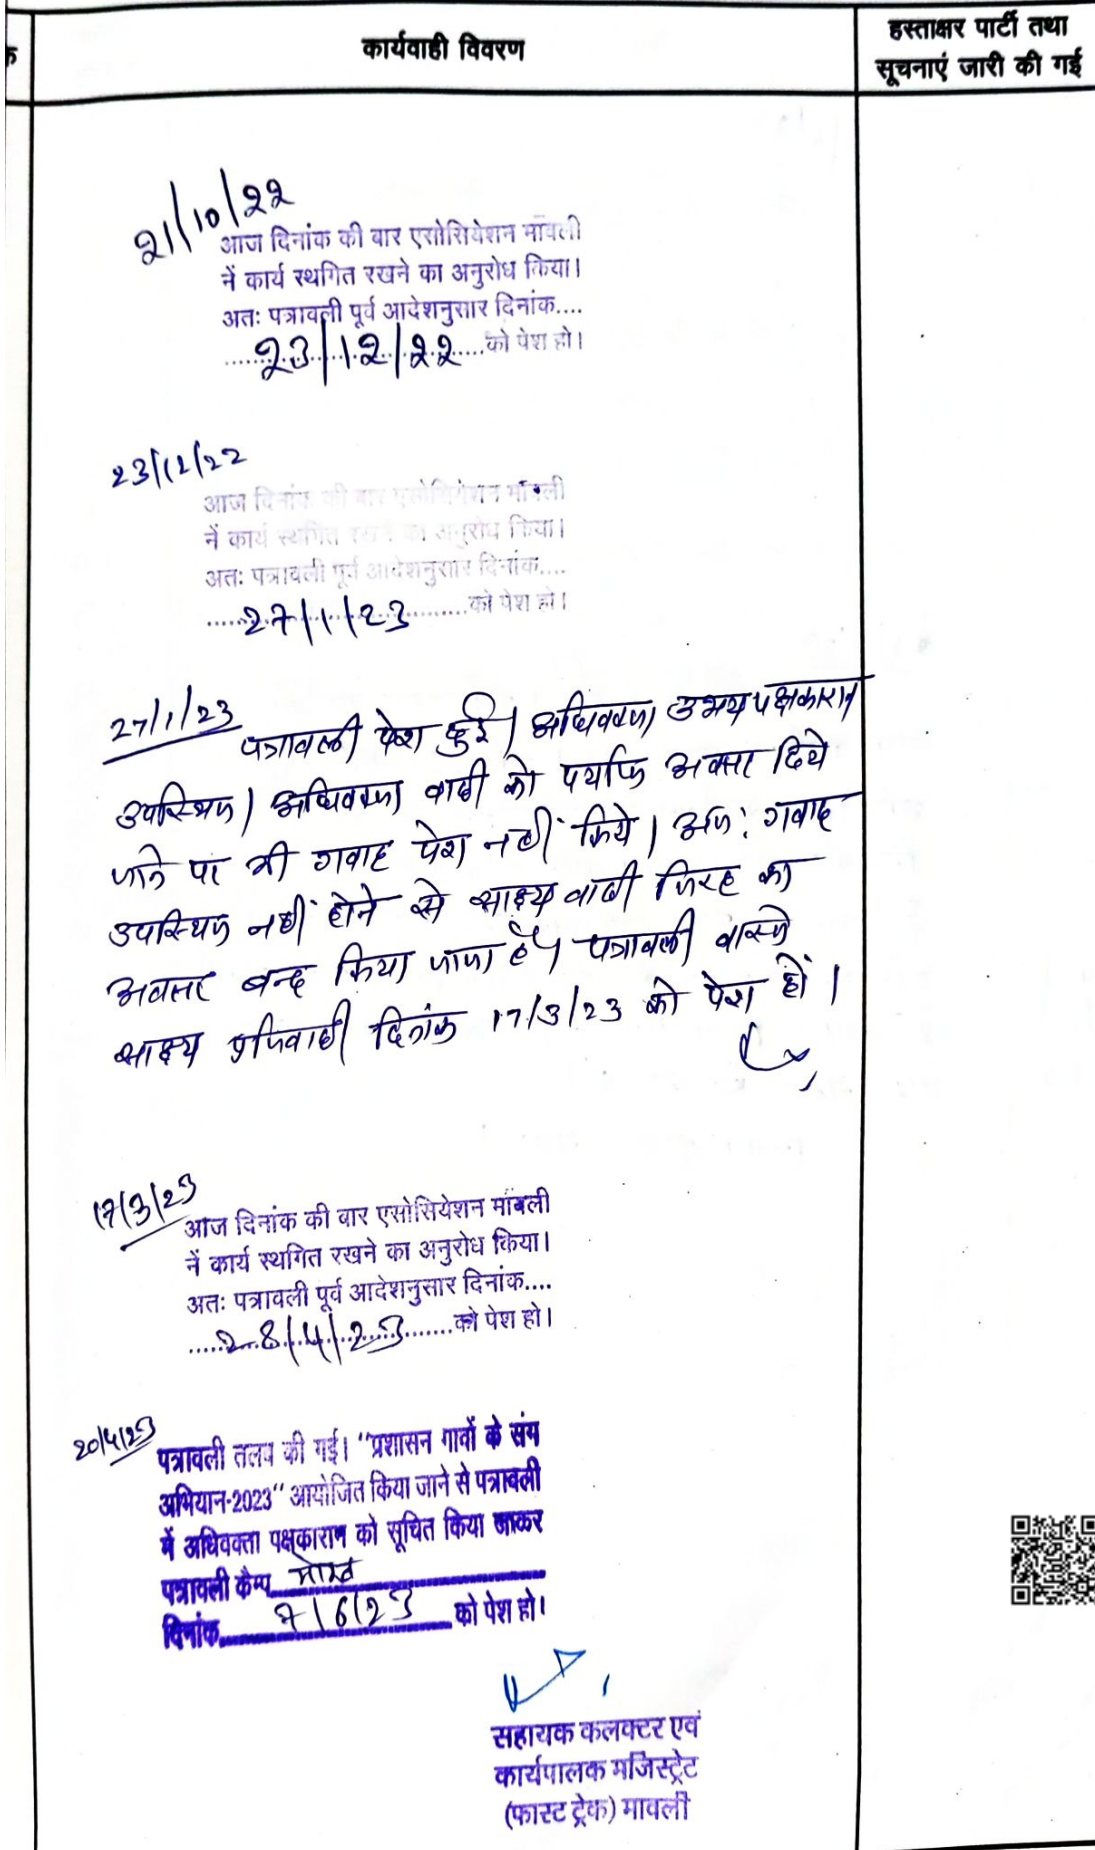 कार्यवाही विवरण
हस्ताक्षर पार्टी तथा
सूचनाएं जारी की गई
21/10/22
आज दिनांक की बार एसोसियेशन मांवली
नें कार्य स्थगित रखने का अनुरोध किया।
अतः पत्रावली पूर्व आदेशनुसार दिनांक....
23/12/22 को पेश हो।
23/12/22
आज दिनांक की बार एसोसियेशन मांवली
नें कार्य स्थगित रखने का अनुरोध किया।
अतः पत्रावली पूर्व आदेशनुसार दिनांक....
27/1/23 को पेश हो।
27/1/23 पत्रावली पेश हुई। अधिवक्ता उभय पक्षकारान
उपस्थित। अधिवक्ता वादी को पर्याप्त अवसर दिये
जाने पर भी गवाह पेश नहीं किये। अतः गवाह
उपस्थित नहीं होने से साक्ष्य वादी जिरह का
अवसर बन्द किया जाता है। पत्रावली वास्ते
साक्ष्य प्रतिवादी दिनांक 17/3/23 को पेश हों।
17/3/23
आज दिनांक की बार एसोसियेशन मांवली
नें कार्य स्थगित रखने का अनुरोध किया।
अतः पत्रावली पूर्व आदेशनुसार दिनांक....
28/4/23 को पेश हो।
20/4/23
पत्रावली तलब की गई। "प्रशासन गावों के संग
अभियान-2023" आयोजित किया जाने से पत्रावली
में अधिवक्ता पक्षकारान को सूचित किया जाकर
पत्रावली कैम्प
दिनांक 7/6/23 को पेश हो।
सहायक कलक्टर एवं
कार्यपालक मजिस्ट्रेट
(फास्ट ट्रेक) मावली